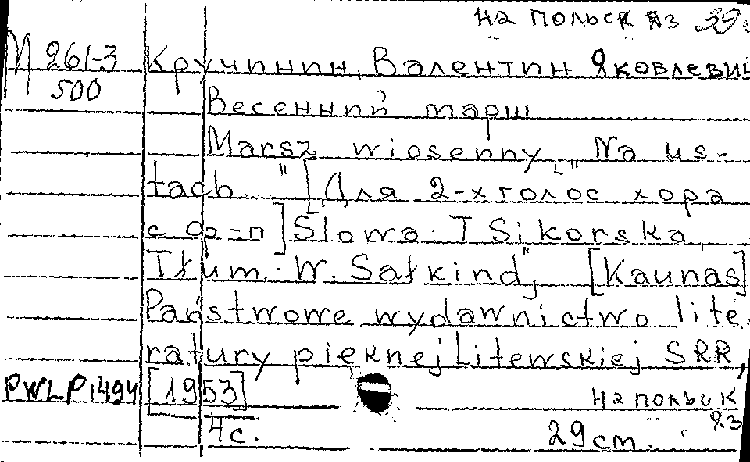 на польск яз
М 261-3 Кручинин, Валентин Яковлевич
500
Весенний марш
Marsz wiosenny „Na us-
tach "[Для 2-х голос хора
с ф-п] Slowa T Sikorska,
Tłum. W. Sałkind", [Kaunas]
Państwowe wydawnictwo lite
ratury pięknej Litewskiej SRR,
PWLP1494 [1953] на польск
яз
4 с. 29 см.